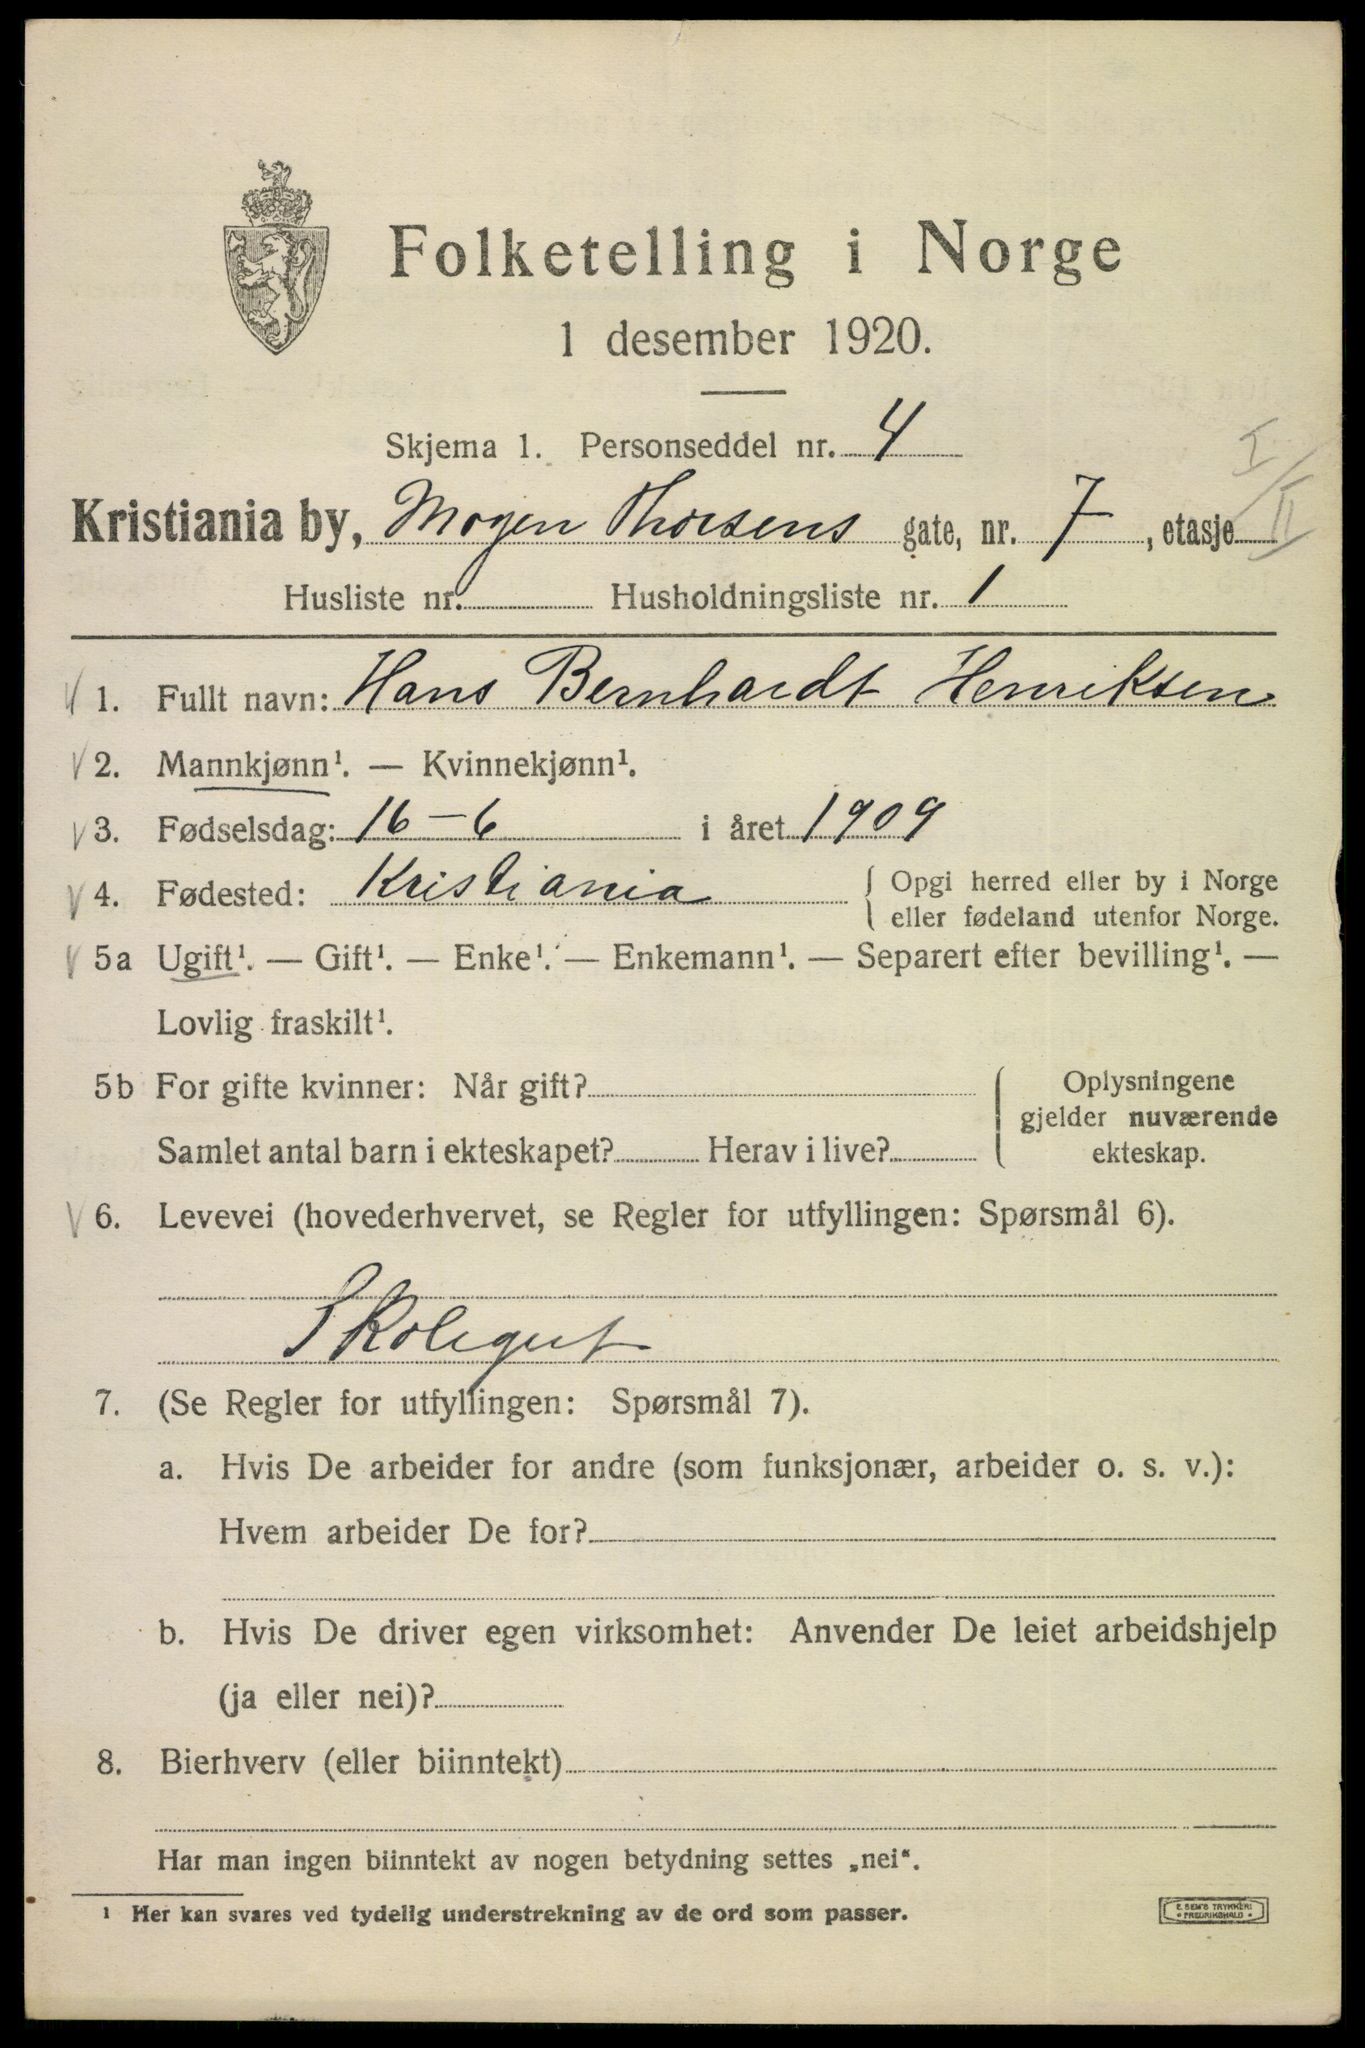 Folketelling i Norge
1 desember 1920.
Skjema 1. Personseddel nr. 4
Kristiania by, Mogen Thorsens gate, nr. 7, etasje I/II
Husliste nr. Husholdningsliste nr. 1
1. Fullt navn: Hans Bernhardt Henriksen
2. Mannkjønn¹. — Kvinnekjønn¹.
3. Fødselsdag: 16-6 i året 1909
4. Fødested: Kristiania { Opgi herred eller by i Norge
eller fødeland utenfor Norge.
5a Ugift¹. — Gift¹. — Enke¹. — Enkemann¹. — Separert efter bevilling¹. —
Lovlig fraskilt¹.
5b For gifte kvinner: Når gift?
Samlet antal barn i ekteskapet? Herav i live?
Oplysningene
gjelder nuværende
ekteskap.
6. Levevei (hovederhvervet, se Regler for utfyllingen: Spørsmål 6).
Skolegut
7. (Se Regler for utfyllingen: Spørsmål 7).
a. Hvis De arbeider for andre (som funksjonær, arbeider o. s. v.):
Hvem arbeider De for?
b. Hvis De driver egen virksomhet: Anvender De leiet arbeidshjelp
(ja eller nei)?
8. Bierhverv (eller biinntekt)
Har man ingen biinntekt av nogen betydning settes „nei“.
¹ Her kan svares ved tydelig understrekning av de ord som passer.
E. SEM'S TRYKKERI
• FREDRIKSHALD •